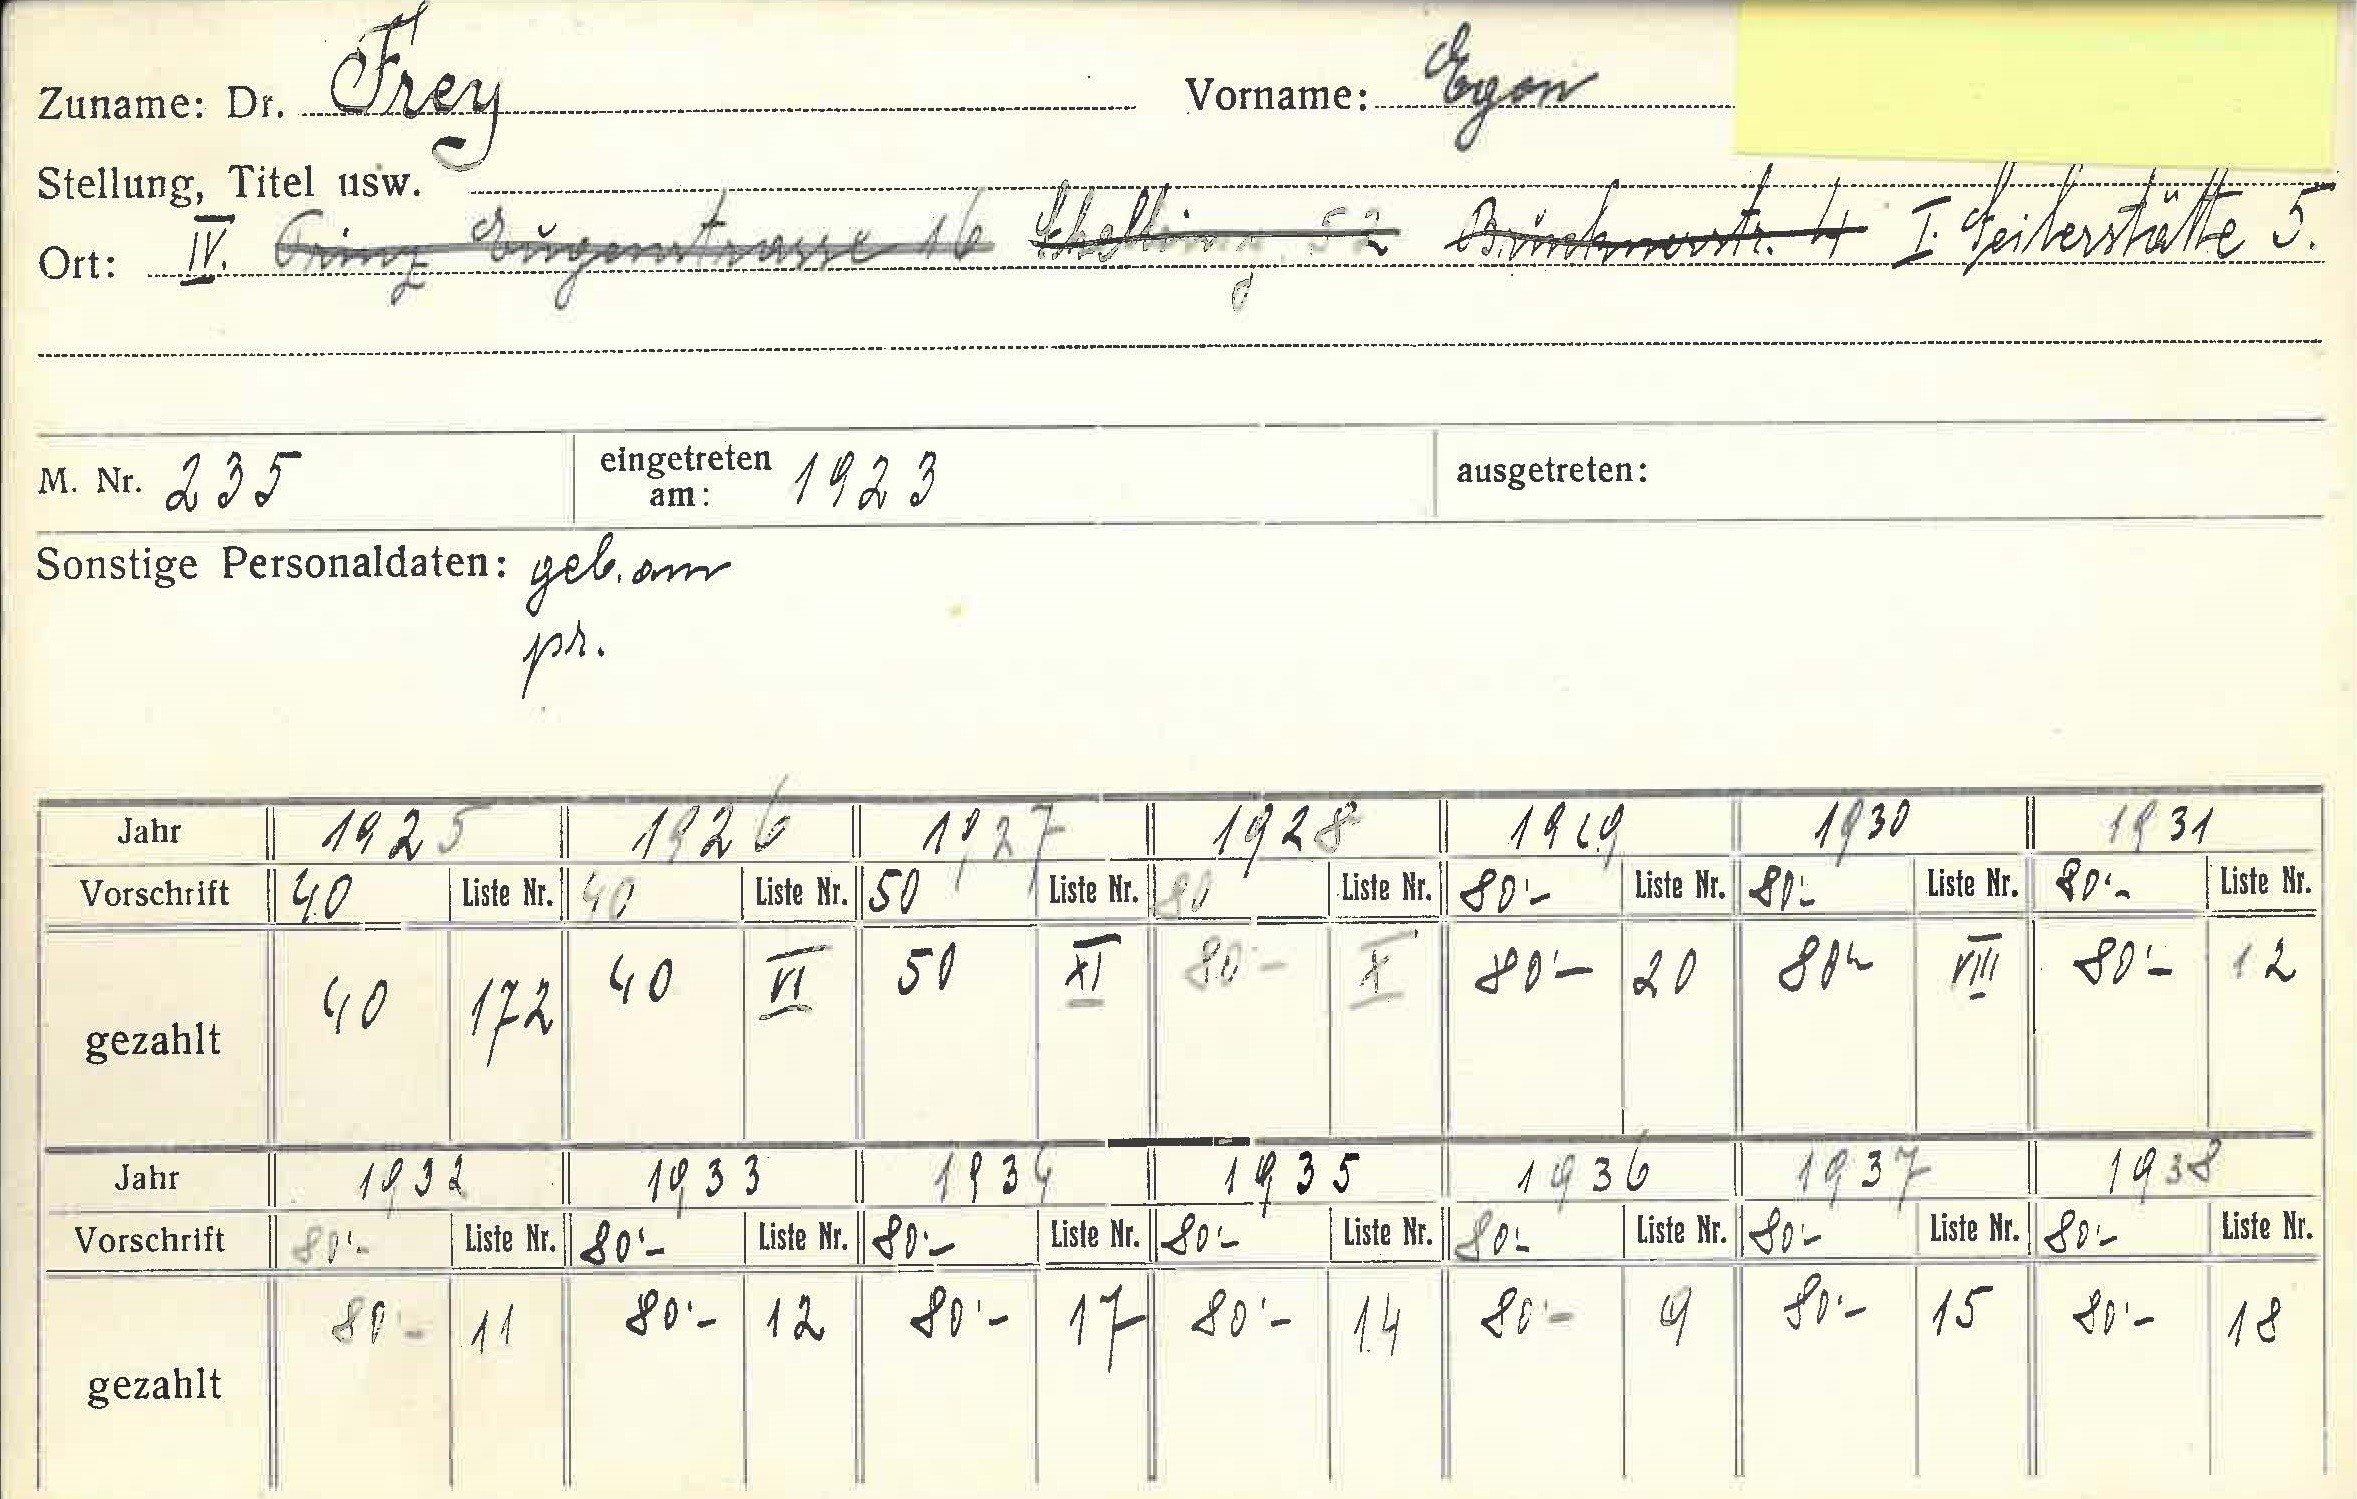 Zuname: Dr. Frey Vorname: Egon
Stellung, Titel usw.
Ort: IV. Prinz Eugenstrasse 16 52 Brucknerstr. 4 I. Seilerstätte 5.
M. Nr. 235 eingetreten am: 1923 ausgetreten:
Sonstige Personaldaten: geb. am
pr.
Jahr 1925 1926 1927 1928 1929 1930 1931
Vorschrift 40 Liste Nr. 40 Liste Nr. 50 Liste Nr. 80 Liste Nr. 80.- Liste Nr. 80.- Liste Nr. 80.- Liste Nr.
gezahlt 40 172 40 VI 50 XI 80.- X 80.- 20 80.- VIII 80.- 12
Jahr 1932 1933 1934 1935 1936 1937 1938
Vorschrift 80.- Liste Nr. 80.- Liste Nr. 80.- Liste Nr. 80.- Liste Nr. 80.- Liste Nr. 80.- Liste Nr. 80.- Liste Nr.
gezahlt 80.- 11 80.- 12 80.- 17 80.- 14 80.- 9 80.- 15 80.- 18